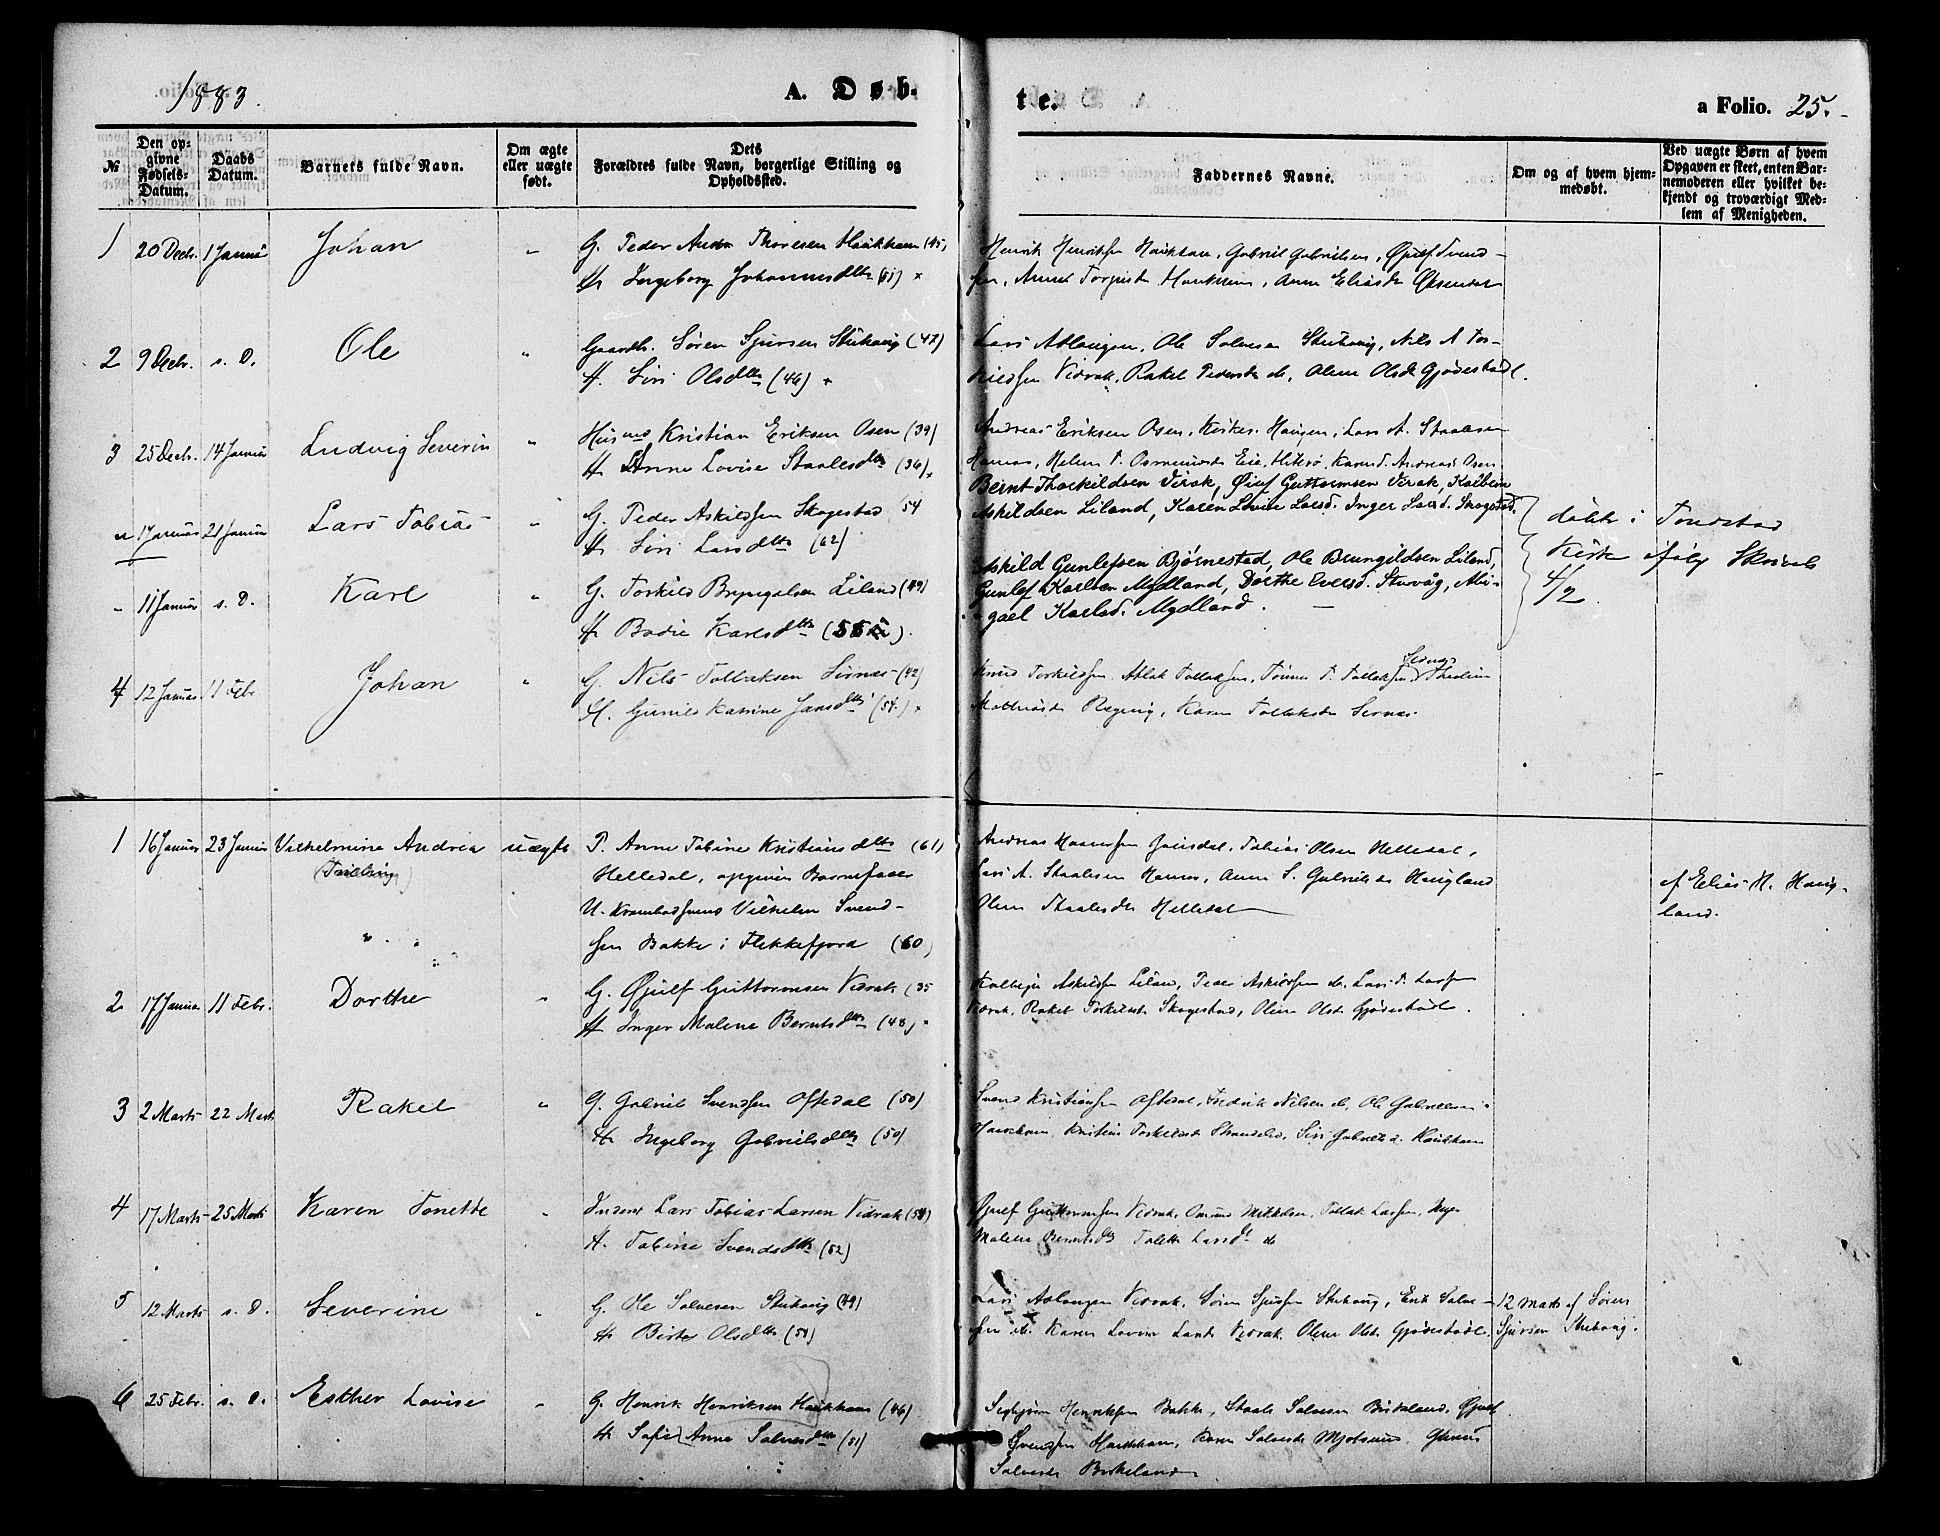 1883.
A. Døb-
te.
a Folio. 25.
№
Den op-
givne
Fødsels-
Datum.
Daabs
Datum.
Barnets fulde Navn.
Om ægte
eller uægte
født.
Dets
Forældres fulde Navn, borgerlige Stilling og
Opholdssted.
Faddernes Navne.
Om og af hvem hjem-
medøbt.
Ved uægte Børn af hvem
Opgaven er skeet, enten Bar-
nemoderen eller hvilket be-
kjendt og troværdigt Med-
lem af Menigheden.
1 20 Decbr. 1 Januar Johan " G. Peder Thoresen Haukham (45)
H. Ingeborg Johannesdtr (51)
Henrik Henriksen Haukham, Gabriel Gabrielsen, Øjulf Svend-
sen, Anne Haukham, Anne Eliasdr
2 9 Decbr. s. D. Ole " Gaardbr. Søren Sjursen Stuhaug (47)
H. Siri Olsdtr (46)
Lars Aslaugsen, Ole Salvesen Stuhaug, Nils A Tor-
kildsen Vidrak, Rakel Pedersdr do, Olene Olsdr Gjødestøl.
3 25 Decbr. 14 Januar Ludvig Severin " Husmd Kristian Eriksen Osen (39)
H. Anne Lovise Staalesdtr (36)
Andreas Eriksen Osen, Lars A. Staalesen
Hamar, Helene T. Eie, Hitterø, Andreasd. Osen
Lars Tobias " G. Peder Askildsen Skogestad (54
H. Siri Larsdtr (62)
1 Januar 21 Januar
Bernt Thorkildsen Virak, Øiuf Guttormsen Virak, Kolbein
Askildsen Liland, Karen Lovise Larsd. Inger Larsd. Skogestad.
døbte i Tonstad
Kirke ifølg Skrivelse
4/2.
" 11 Januar s. D. Karl " G. Torkild Bryngelsen Liland (49)
H. Bodil Karlsdtr (55).
Askild Gunlefsen Bjørnestad, Ole Brungildsen Liland,
Gunlef Karlsen Mydland, Dorthe Eversd. Stuvåg, Abi-
gael Karlsd. Mydland.
4 12 Januar 11 Febr Johan " G. Nils Tollaksen Sirnes (42)
H. Gunild Katrine Jansdtr (54.)
Knud Torkildsen, Atlak Tollaksen, Tønnes T. Tollaksen
Karen Tollaksdr Sirnes.
1 16 Januar 23 Januar Vilhelmine Andrea uægte P. Anne Tobine Kristiansdtr (61)
(Tvilling)
Helledal, opgiven Barnefader
U. Vilhelm Svend-
sen Bakke i Flekkefjord (60)
Andreas Tobias Olsen Helledal,
Lars A. Staalesen Hamar, Anne S. Gabrielsdr Haugland
Olene Staalesdr Helledal
af Elias H. Haug-
land.
2 17 Januar 11 Febr. Dorthe " G. Øjulf Guttormsen Vidrak (35
H. Inger Malene Berntsdtr (48)
Kolbein Askildsen Liland, Peder Askildsen do, Lars T. Larsen
Vidrak, Rakel Torkildsdr Skogestad, Olene Olsdr Gjødestøl.
3 2 Marts 22 Marts Rakel " G. Gabriel Svendsen Oftedal (50)
H. Ingeborg Gabrielsdtr (50)
Svend Kristiansen Oftedal, Fredrik Nilsen do, Ole Gabrielsen
Haukham, Kristine Torkildsdr Siri Gabrielsd. Haukham
4 17 Marts 25 Marts Karen Tonette " Lars Tobias Larsen Vidrak (58)
H. Tobine Svendsdtr (52)
Øjulf Guttormsen Vidrak, Tollak Larsen, Inger
Malene Berntsdtr Larsdr do
5 12 Marts s. D. Severine " G. Ole Salvesen Stuhaug (49)
H. Birte Olsdtr (58)
Lars Aslaugsen Vidrak, Søren Sjursen Stuhaug, Erik Salve-
sen do. Karen Lovise Larsdr Vidrak. Olene Olsdr Gjødestøl.
12 Marts af Søren
Sjursen Stuhaug.
6 25 Febr. s. D. Esther Lovise " G. Henrik Henriksen Haukham (46)
H. Sofie Anne Salvesdtr (51)
Henriksen Bakke, Staale Salvesen Birkeland, Øjulf
Svendsen Haukham, Karen Salvesdr
Salvesdr Birkeland